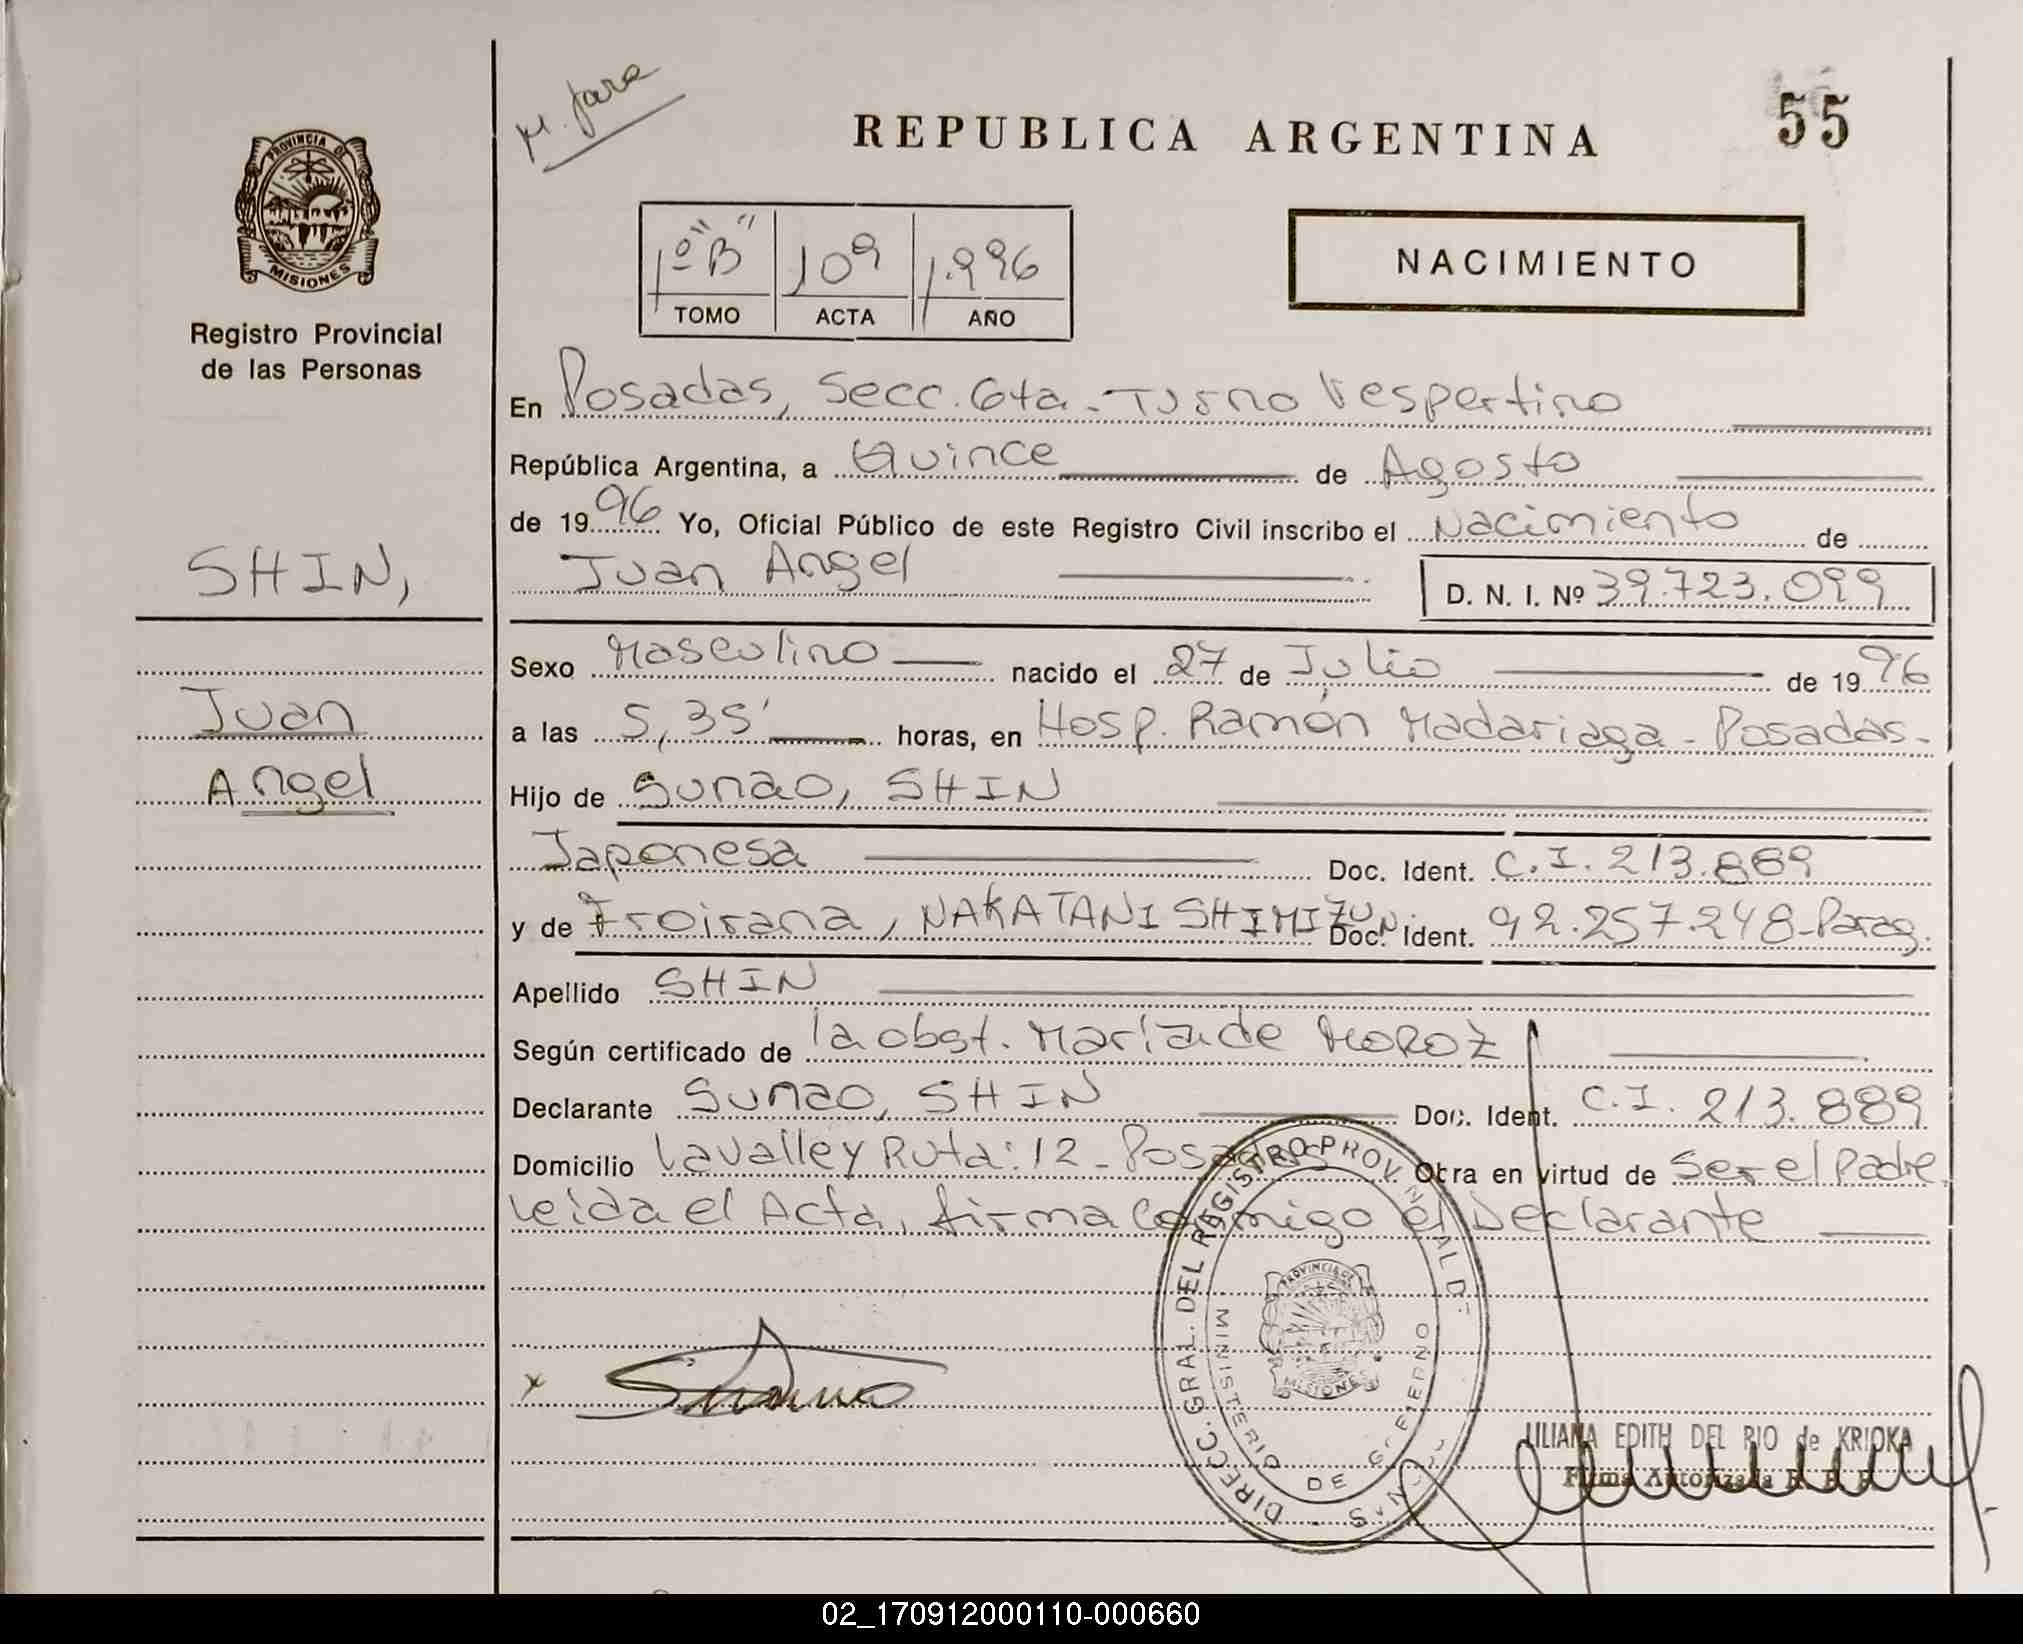 M. Jara
REPUBLICA ARGENTINA
55
PROVINCIA DE
MISIONES
Registro Provincial
de las Personas
1º "B" 109 1.996
TOMO ACTA AÑO
NACIMIENTO
En Posadas, Secc. 6ta - Turno Vespertino
República Argentina, a Quince de Agosto
de 1996 Yo, Oficial Público de este Registro Civil inscribo el Nacimiento de
Juan Angel D. N. I. Nº 39.723.099
SHIN,
Juan
Angel
Sexo Masculino nacido el 27 de Julio de 1996
a las 5,35' horas, en Hosp. Ramón Madariaga - Posadas-
Hijo de Sunao, SHIN
Japonesa Doc. Ident. C.I. 213.889
y de Froirana, NAKATANI SHIMIZU Doc. Ident. 92.257.248-Parag.
Apellido SHIN
Según certificado de la obst. María de MOROZ
Declarante Sunao, SHIN Doc. Ident. C.I. 213.889
Domicilio Lavalle y Ruta: 12 - Posadas Obra en virtud de Ser el Padre,
Leída el Acta, firma Conmigo el Declarante
x
DIRECC. GRAL. DEL REGISTRO PROVINCIAL D
MINISTERIO DE GOBIERNO
PROVINCIA DE
MISIONES
LILIANA EDITH DEL RIO de KRIOKA
Firma Autorizada R. P. P.
02_170912000110-000660